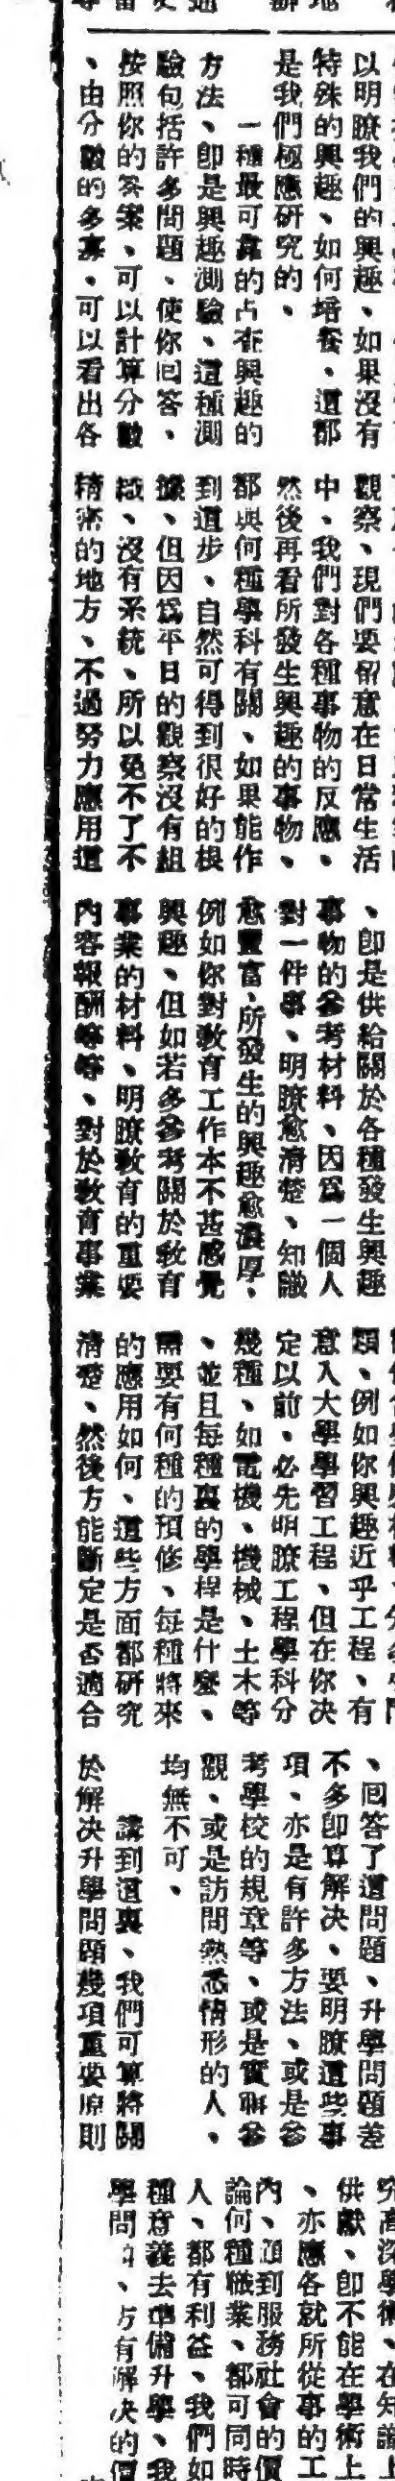 以明瞭我們的興趣、如果沒有
特殊的興趣、如何培養、這都
是我們極應研究的、
一種最可靠的占在興趣的
方法、卽是興趣測驗、這種測
驗包括許多問題、使你回答、
按照你的答案、可以計算分數
、由分數的多寡、可以看出各
觀察、現們要留意在日常生活
中、我們對各種事物的反應、
然後再看所發生興趣的事物、
都與何種學科有關、如果能作
到這步、自然可得到很好的根
據、但因爲平日的觀察沒有組
織、沒有系統、所以免不了不
精密的地方、不過努力應用這
、卽是供給關於各種發生興趣
事物的參考材料、因爲一個人
對一件事、明瞭愈清楚、知識
愈豐富、所發生的興趣愈濃厚、
例如你對敎育工作本不甚感覺
興趣、但如若多參考關於敎育
事業的材料、明瞭敎育的重要
內容報酬等等、對於敎育事業
類、例如你興趣近乎工程、有
意入大學學習工程、但在你决
定以前、必先明瞭工程學科分
幾種、如電機、機械、土木等
、並且每種裏的學程是什麼、
需要有何種的預修、每種將來
的應用如何、這些方面都研究
清楚、然後方能斷定是否適合
、回答了這問題、升學問題差
不多卽算解决、要明瞭這些事
項、亦是有許多方法、或是參
考學校的規章等、或是實際參
觀、或是訪問熟悉情形的人、
均無不可、
講到這裏、我們可算將關
於解决升學問題幾項重要原則
究高深學術、在知識上
供獻、卽不能在學術上
、亦應各就所從事的工
內、顧到服務社會的價
論何種職業、都可同時
人、都有利益、我們如
種意義去準備升學、我
學問、方有解决的價